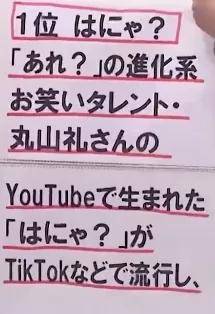 1位 はにゃ?
「あれ?」の進化系
お笑いタレント・
丸山礼さんの
YouTubeで生まれた
「はにゃ?」が
TikTokなどで流行し、